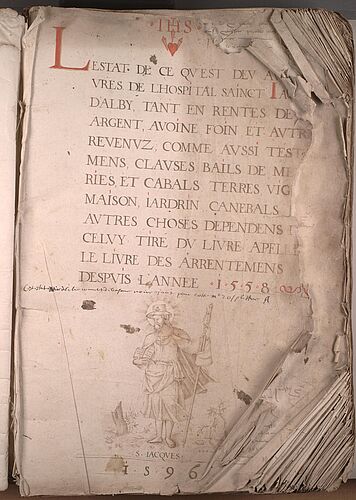 IHS
LESTAT DE CE QVEST DEV A
VRES DE LHOSPITAL SAINCT IA
D'ALBY, TANT EN RENTES DE
ARGENT, AVOINE FOIN ET AVTR
REVENVZ, COMME AVSSI TEST
MENS, CLAVSES BAILS DE ME
RIES, ET CABALS TERRES VIG
MAISON, IARDRIN CANEBALS
AVTRES CHOSES DEPENDENS
CELVY TIRE DV LIVRE APELL
LE LIVRE DES ARRENTEMENS
DESPVIS L'ANNEE · 1 · 5 · 5 · 8
S. IACQVES
1596